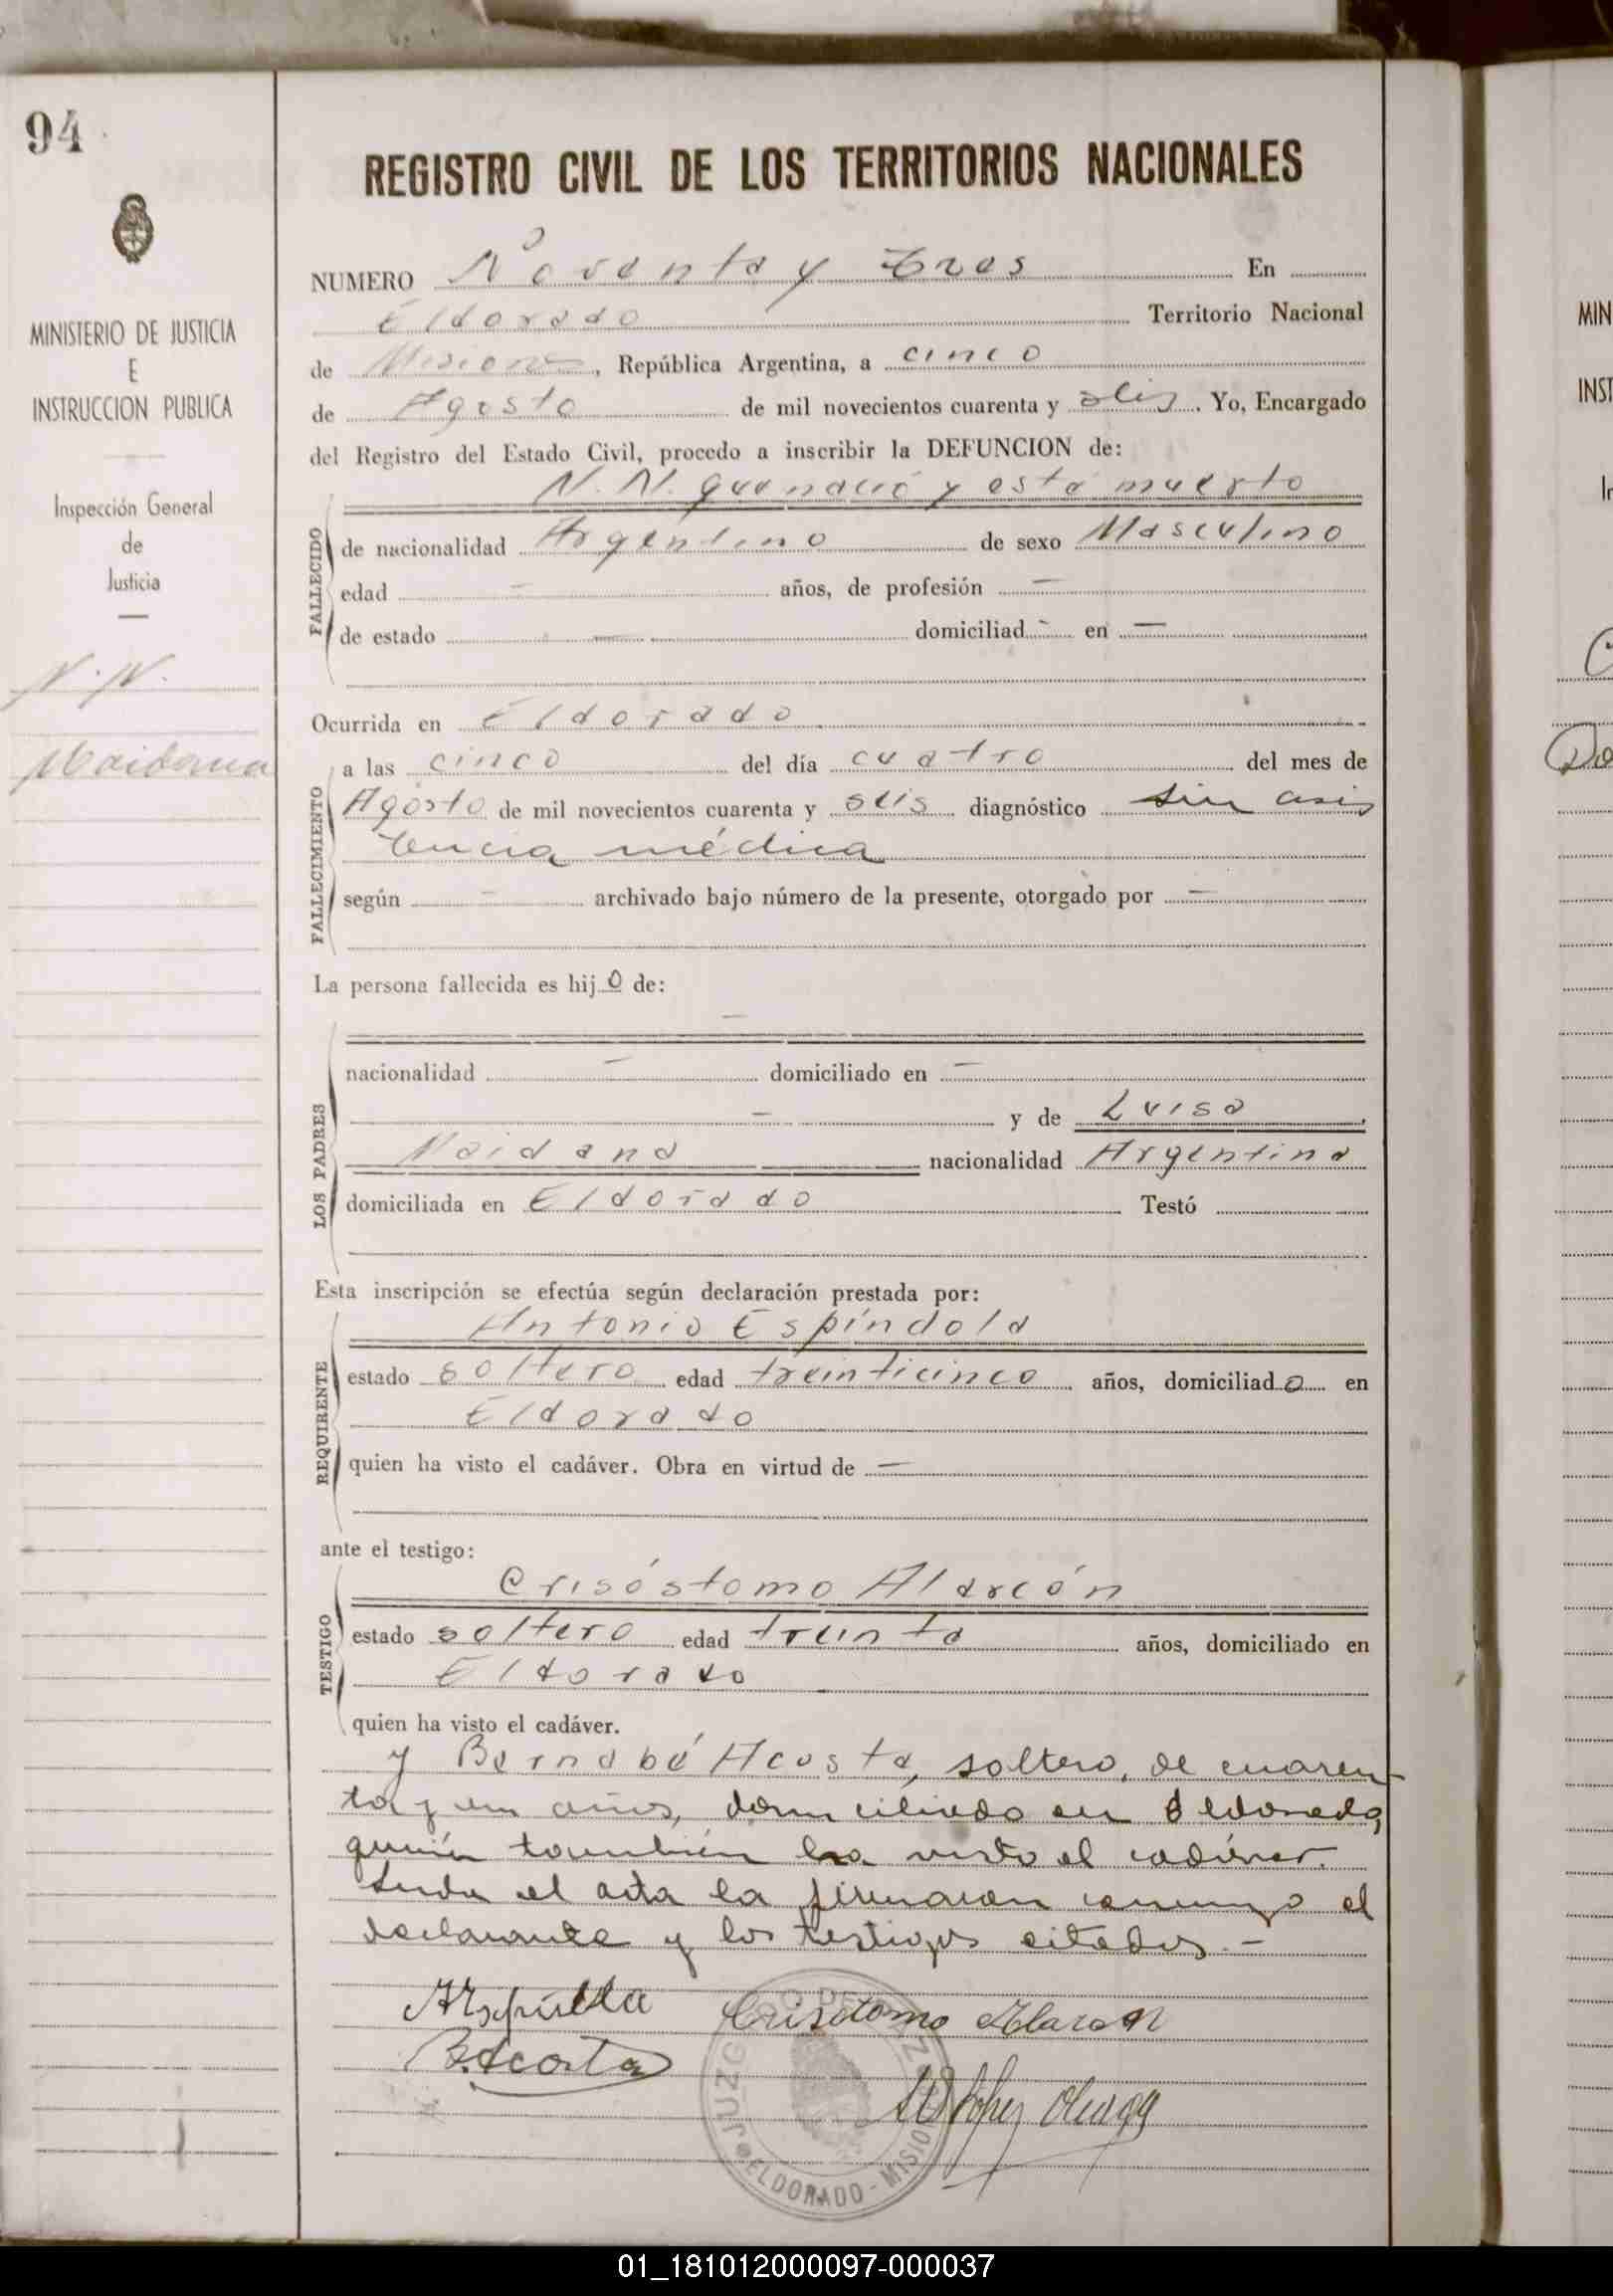 94
REGISTRO CIVIL DE LOS TERRITORIOS NACIONALES
MINISTERIO DE JUSTICIA
E
INSTRUCCION PUBLICA
Inspección General
de
Justicia
N. N.
Maidana
NUMERO Noventa y Tres En
Eldorado Territorio Nacional
de Misiones, República Argentina, a cinco
de Agosto de mil novecientos cuarenta y seis. Yo, Encargado
del Registro del Estado Civil, procedo a inscribir la DEFUNCION de:
N. N. que nació y está muerto
FALLECIDO
de nacionalidad Argentino de sexo Masculino
edad — años, de profesión —
de estado — domiciliad - en —
Ocurrida en Eldorado
a las cinco del día cuatro del mes de
FALLECIMIENTO
Agosto de mil novecientos cuarenta y seis diagnóstico sin asis
tencia médica
según — archivado bajo número de la presente, otorgado por —
La persona fallecida es hijo de:
—
LOS PADRES
nacionalidad — domiciliado en —
— y de Luisa
Maidana nacionalidad Argentina
domiciliada en Eldorado Testó
Esta inscripción se efectúa según declaración prestada por:
Antonio Espíndola
REQUIRENTE
estado soltero edad treinticinco años, domiciliado en
Eldorado
quien ha visto el cadáver. Obra en virtud de —
ante el testigo:
Crisóstomo Alarcón
TESTIGO
estado soltero edad treinta años, domiciliado en
Eldorado
quien ha visto el cadáver.
y Bernabé Acosta, soltero, de cuaren-
ta y un años, domiciliado en Eldorado,
quién también ha visto el cadáver.
Leida el acta la firmaron conmigo el
declarante y los testigos citados.-
Crisotomo Alarcon
B. Acosta
JUZGADO DE PAZ
ELDORADO - MISIONES
01_181012000097-000037